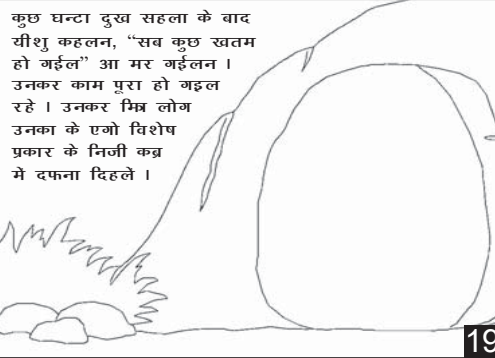 कुछ घन्टा दुख सहला के बाद
यीशु कहलन, “सब कुछ खतम
हो गईल” आ मर गईलन ।
उनकर काम पूरा हो गइल
रहे । उनकर मित्र लोग
उनका के एगो विशेष
प्रकार के निजी कब्र
में दफना दिहलें ।
19